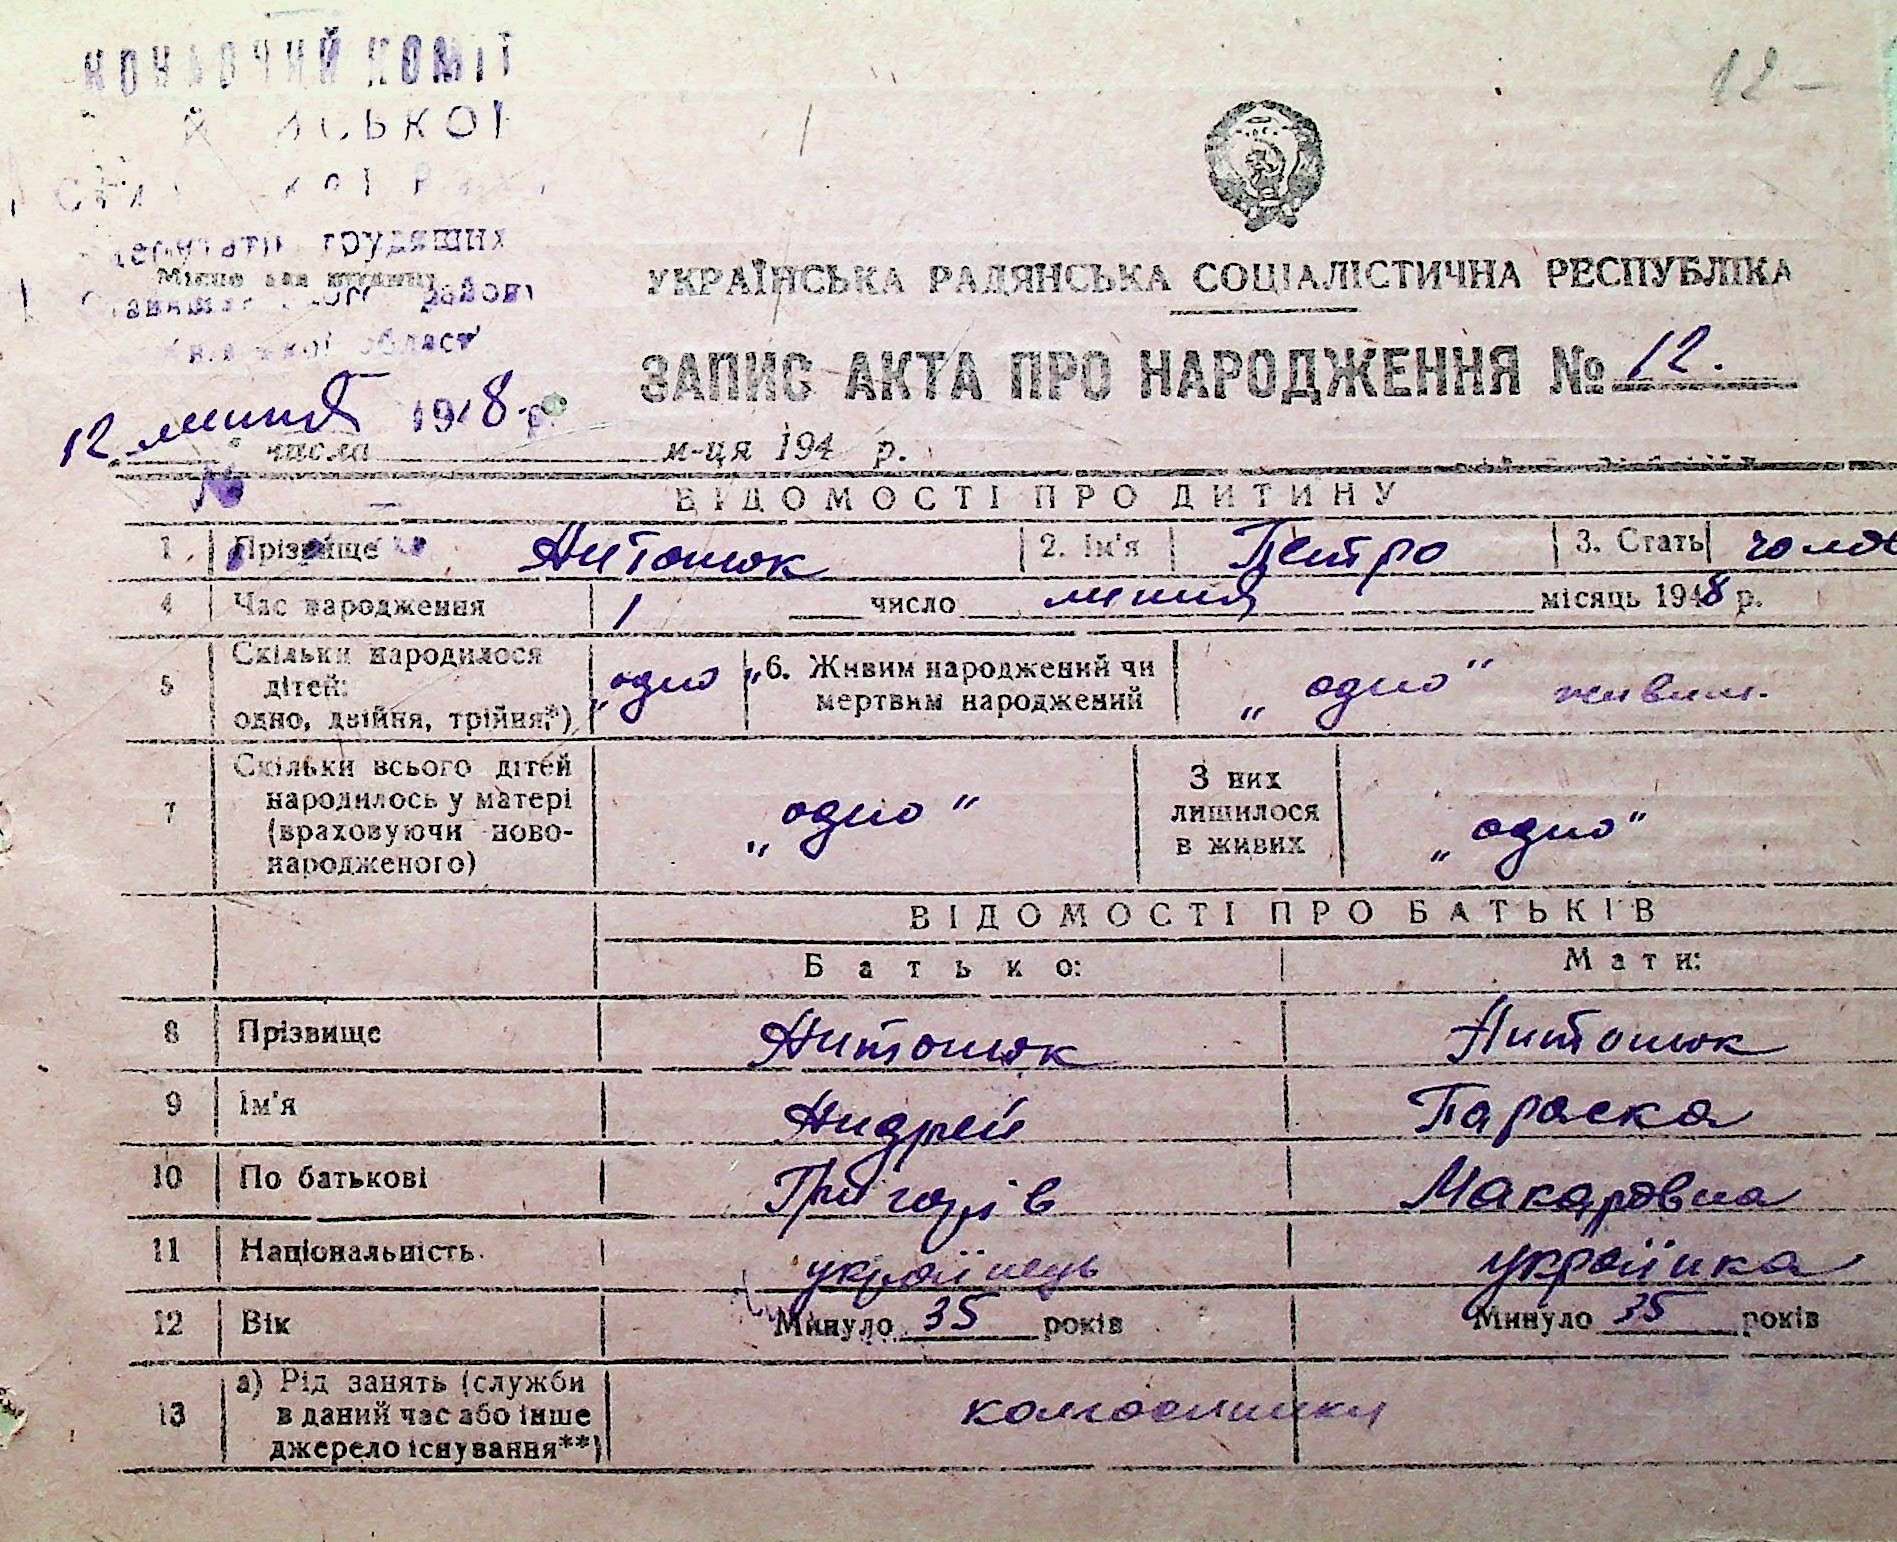 12 -
КОМІТ
СЬКОЇ
трудящих
Місце для штампу
район
області
УКРАЇНСЬКА РАДЯНСЬКА СОЦІАЛІСТИЧНА РЕСПУБЛІКА
ЗАПИС АКТА ПРО НАРОДЖЕННЯ № 12.
12 липня 1948 р.
числа м-ця 194 р.
ВІДОМОСТІ ПРО ДИТИНУ
1 Прізвище Антонюк 2. Ім'я Петро 3. Стать чолов
4 Час народження 1 число липня місяць 1948 р.
Скільки народилося
5 дітей: „одно" 6. Живим народжений чи „одно" живим.
одно, двійня, трійня*) мертвим народжений
Скільки всього дітей
народилось у матері З них
7 (враховуючи ново- „одно" лишилося „одно"
народженого) в живих
ВІДОМОСТІ ПРО БАТЬКІВ
Батько: Мати:
8 Прізвище Антонюк Антонюк
9 Ім'я Андрей Параска
10 По батькові Григорів Макаровна
11 Національність українець українка
12 Вік Минуло 35 років Минуло 35 років
а) Рід занять (служби
13 в даний час або інше колгоспники
джерело існування**)